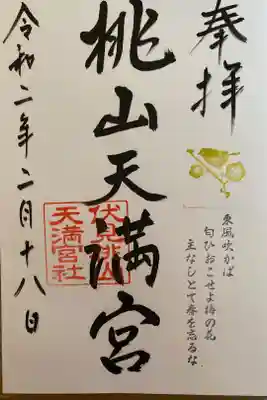 奉拝
東風吹かば
匂ひおこせよ梅の花
主なしとて春を忘るな
桃山天満宮
伏見桃山
天満宮社
令和二年二月十八日